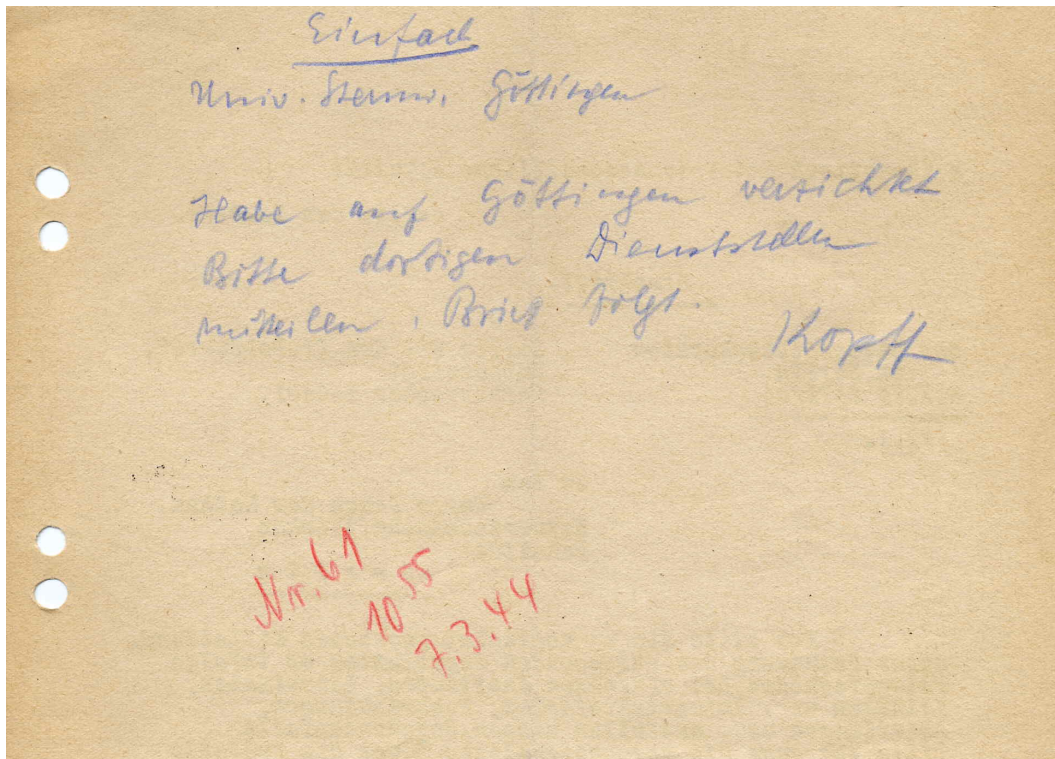 Einfach
Univ. Sternw. Göttingen
Habe auf Göttingen verzichtet
Bitte dortigen Dienststellen
mitteilen, Brief folgt.
Kopff
Nr. 61
10 55
7.3.44